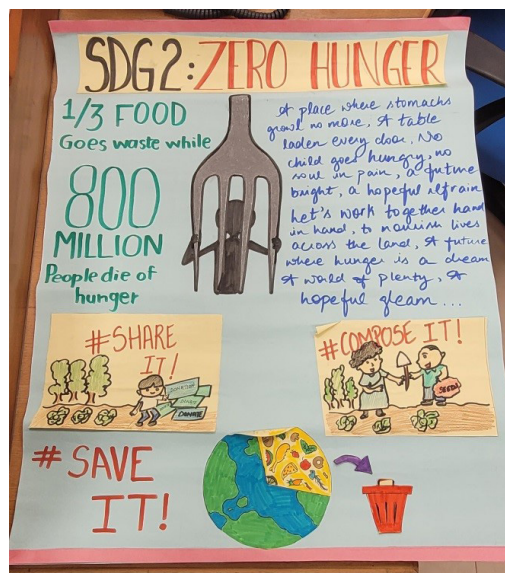 SDG2: ZERO HUNGER
1/3 FOOD
Goes waste while
800
MILLION
People die of
hunger
A place where stomachs
growl no more, A table
laden every door, No
child goes hungry, no
soul in pain, a future
bright, a hopeful refrain
Let's work together hand
in hand, to nourish lives
across the land, A future
where hunger is a dream
A world of plenty, A
hopeful gleam...
#SHARE
IT!
DONATION
DONATE
#COMPOSE IT!
SEEDS
# SAVE
IT!